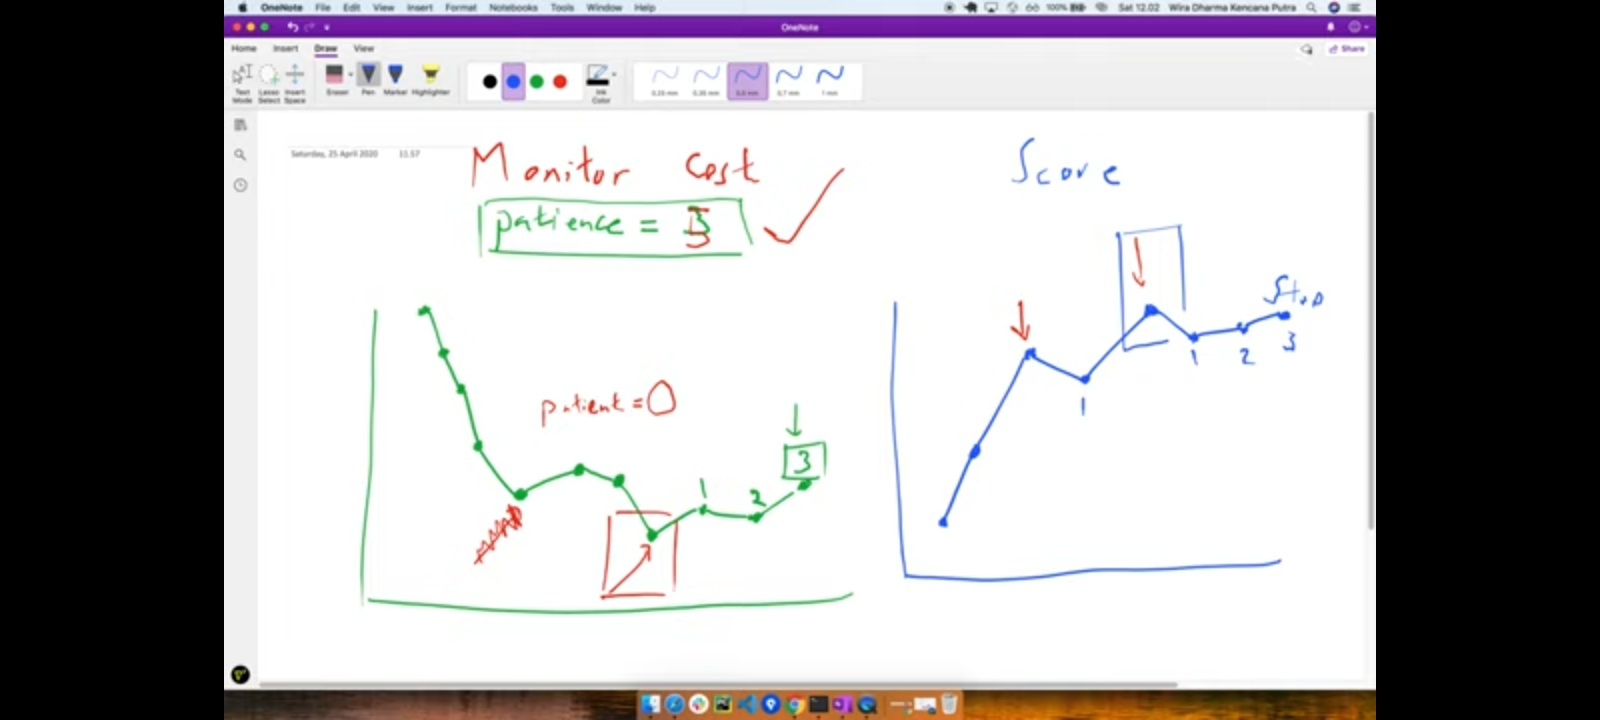 OneNote File Edit View Insert Format Notebooks Tools Window Help 100% Sat 12.02 Wira Dharma Kencana Putra
OneNote
Home Insert Draw View Share
Text Mode Lasso Select Insert Space Eraser Pen Marker Highlighter Ink Color 0.25 mm 0.35 mm 0.5 mm 0.7 mm 1 mm
Saturday, 25 April 2020 11.57
Monitor Cost
Score
patience =
Stop
1 2 3
1
patient = 0
3
1 2